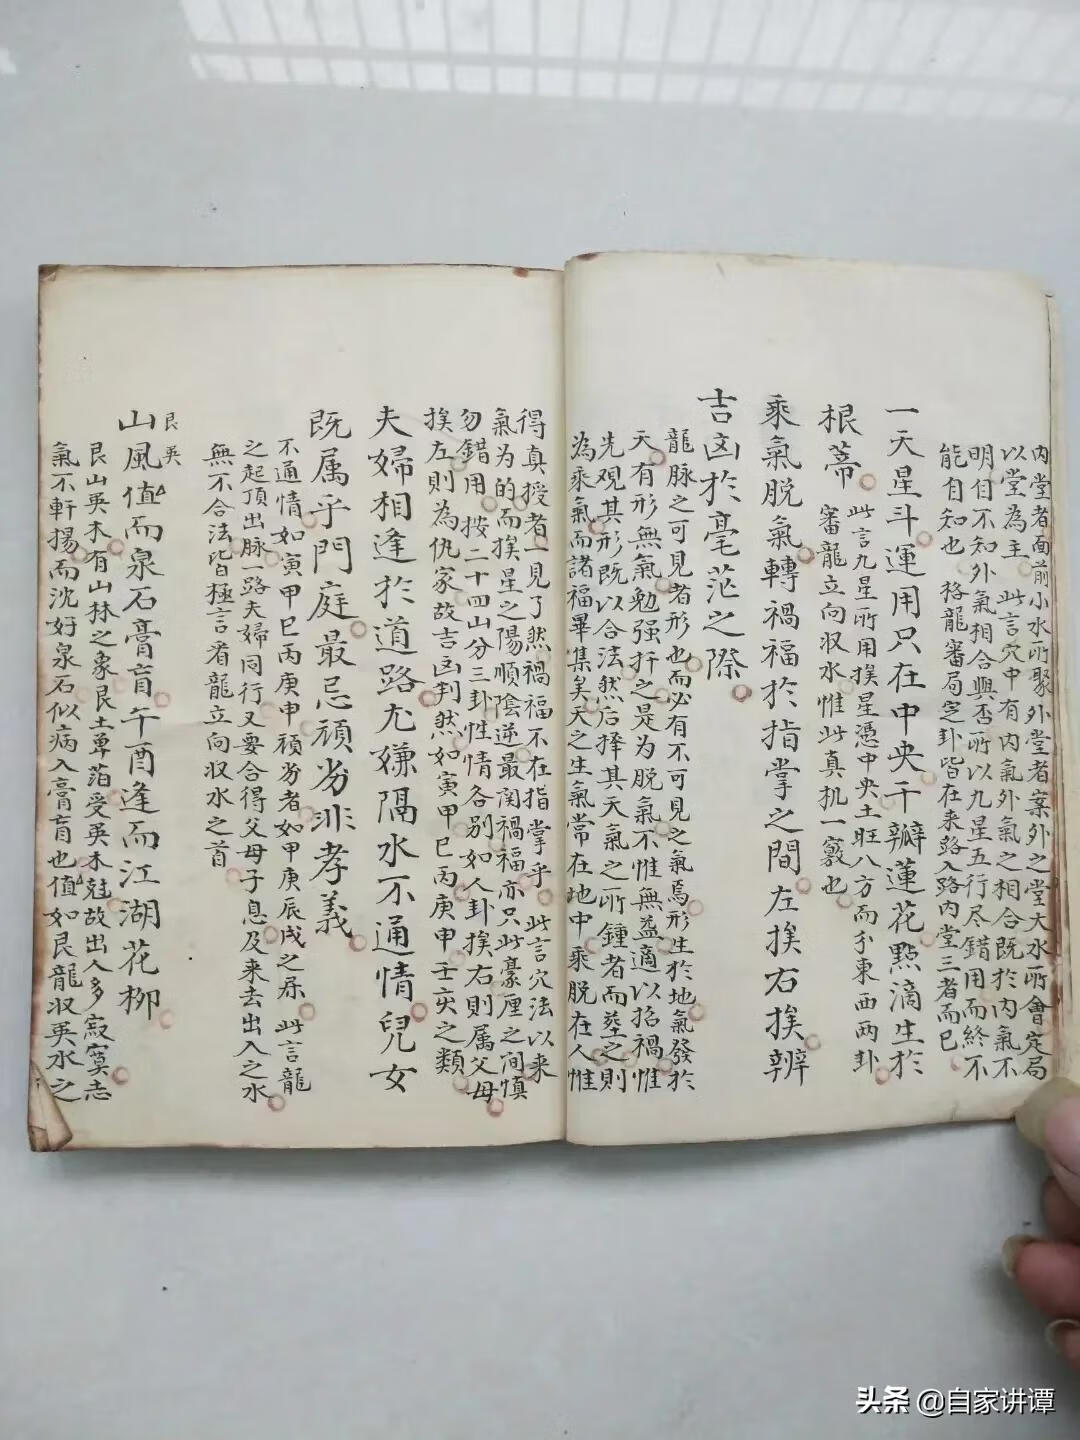 内堂者面前小水所聚外堂者案外之堂大水所會定局
以堂為主此言穴中有内氣外氣之相合既於内氣不
明自不知外氣相合與否所以九星五行尽錯用而終不
能自知也 格龍審局定卦皆在来路入路内堂三者而已
一天星斗運用只在中央千瓣蓮花點滴生於
根蒂
此言九星所用挨星憑中央土旺八方而分東西两卦
審龍立向収水惟此真机一竅也
乘氣脱氣轉禍福於指掌之間左挨右挨辨
吉凶於毫茫之際
龍脉之可見者形也而必有不可見之氣焉形生於地氣發於
天有形無氣勉强扦之是为脱氣不惟無益適以招禍惟
先观其形既以合法然后擇其天氣之所鍾者而塟之則
為乘氣而諸福畢集矣天之生氣常在地中乘脱在人惟
得真授者一見了然禍福不在指掌乎 此言穴法以来
氣为的而挨星之陽順陰逆最関禍福亦只此豪厘之间慎
勿錯用 按二十四山分三卦性情各别如人卦挨右則属父母
挨左則為仇家故吉凶判然如寅甲巳丙庚申壬亥之類
夫婦相逢於道路尤嫌隔水不通情兒女
既属乎門庭最忌頑劣非孝義
不通情如寅甲巳丙庚申頑劣者如甲庚辰戌之屬 此言龍
之起頂出脉一路夫婦同行又要合得父母子息及来去出入之水
無不合法皆極言看龍立向収水之首
艮巽
山風值而泉石膏肓午酉逢而江湖花柳
艮山巽木有山林之象艮土單萡受巽木尅故出人多寂寞志
氣不軒揚而沈好泉石似病入膏肓也值如艮龍収巽水之
头条 @自家讲谭